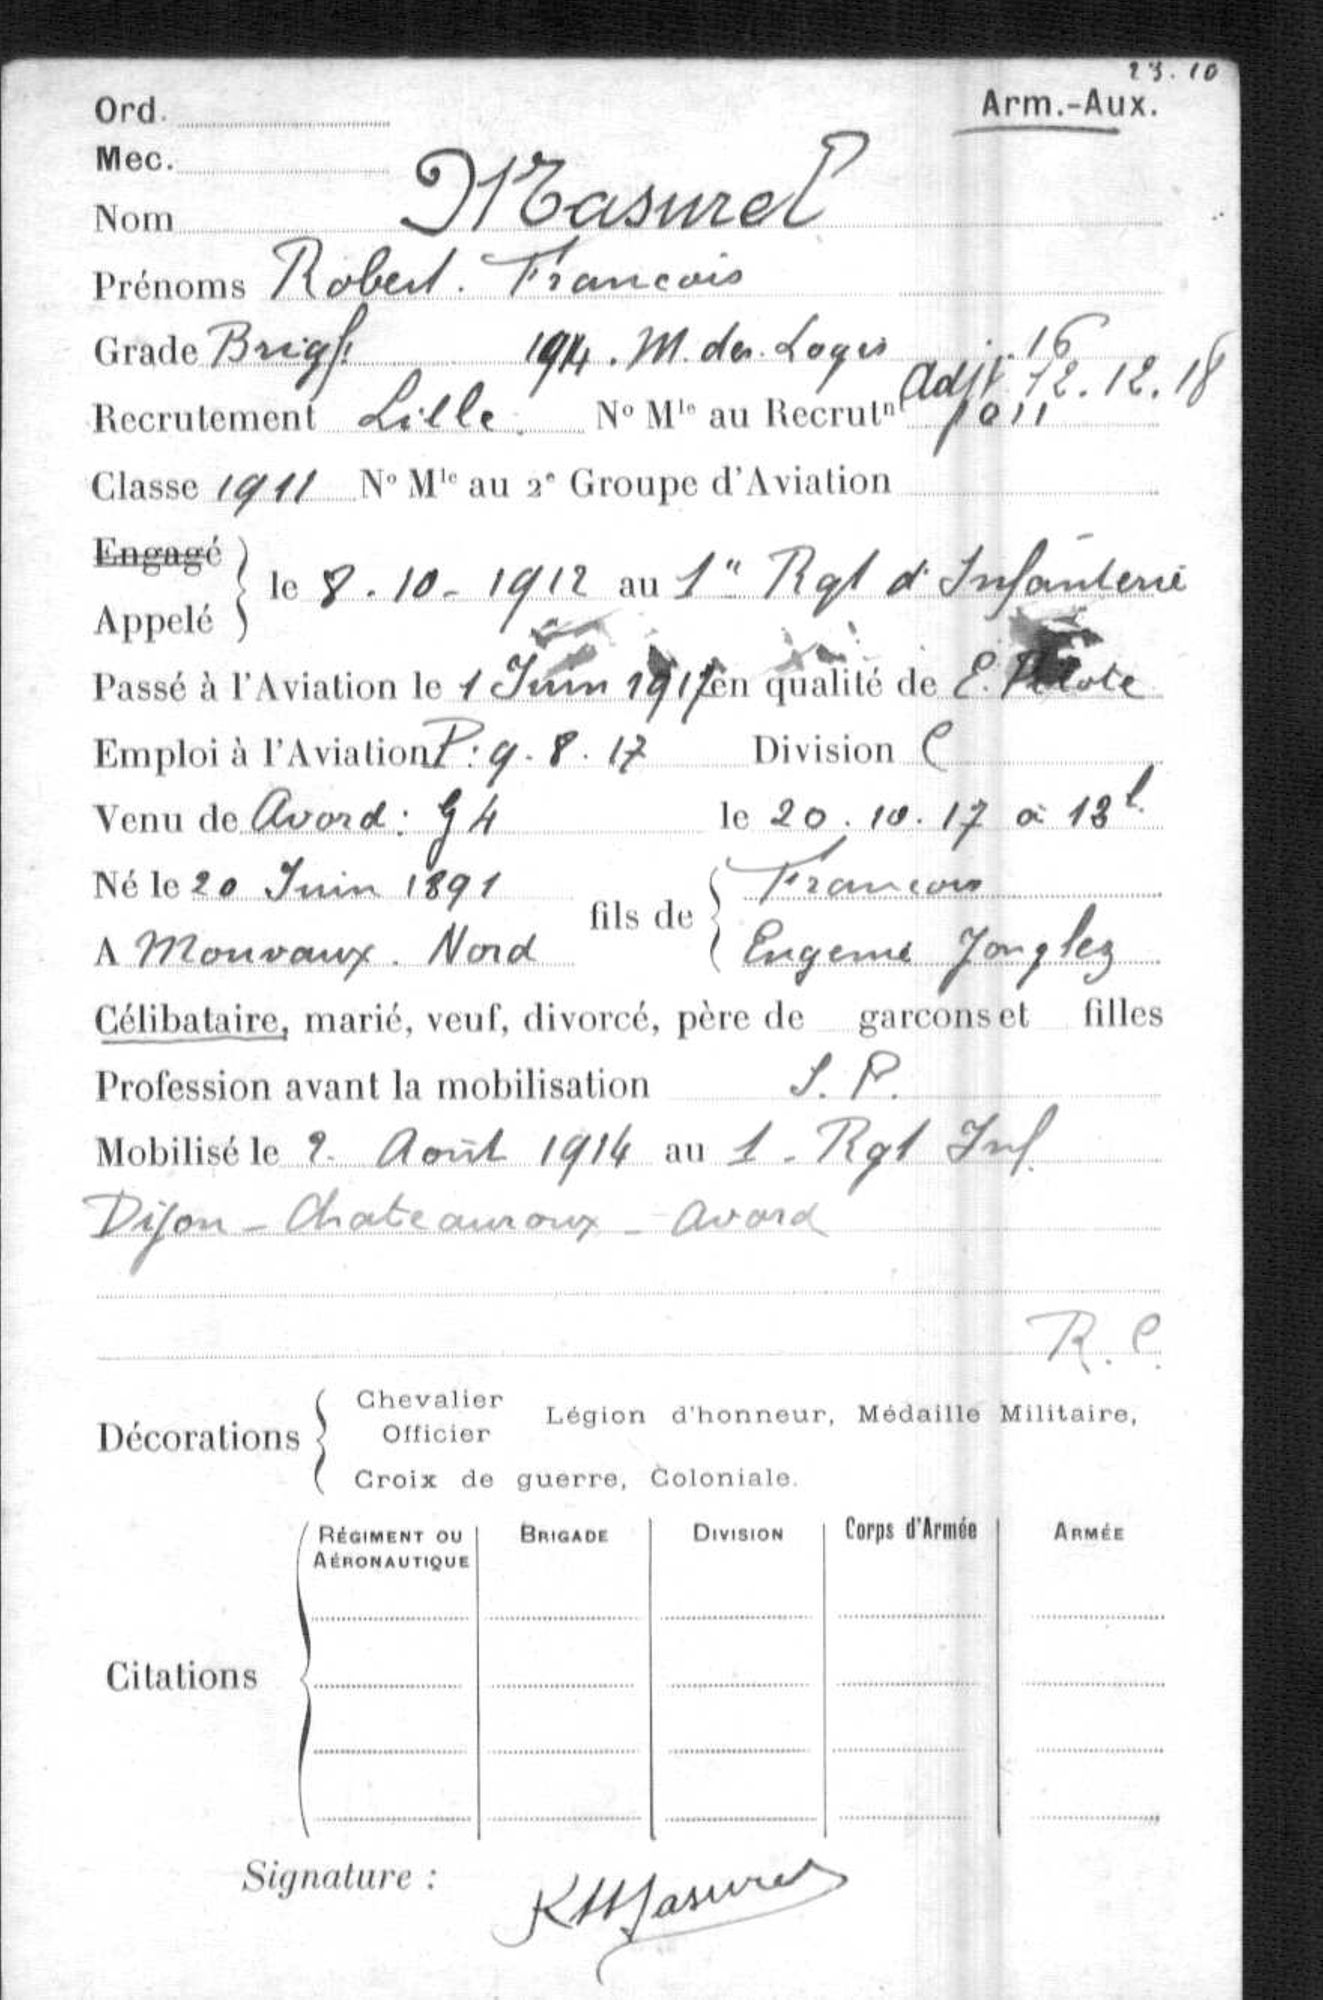 23.10
Ord.
Arm.-Aux.
Mec.
Nom Masurel
Prénoms Robert. Francois
Grade Brigr. M. des. Logis 16
Adjt 12.12.18
Recrutement Lille. No Mle au Recrutnt 1011
Classe 1911 No Mle au 2e Groupe d'Aviation
Engagé
Appelé } le 8.10-1912 au 1er Rgt d'Infanterie
Passé à l'Aviation le 1 Juin 1917 en qualité de E. Pilote
Emploi à l'Aviation P: 9.8.17 Division C
Venu de Avord: G4 le 20.10.17 à
Né le 20 Juin 1891 fils de { Francois
A Mouvaux. Nord Eugenie Jonglez
Célibataire, marié, veuf, divorcé, père de garcons et filles
Profession avant la mobilisation S. P.
Mobilisé le 2. Août 1914 au 1. Rgt Inf.
Dijon - Chateauroux - Avord
R. C.
Décorations { Chevalier
Officier Légion d'honneur, Médaille Militaire,
Croix de guerre, Coloniale.
Citations { RÉGIMENT OU AÉRONAUTIQUE BRIGADE DIVISION Corps d'Armée ARMÉE
Signature : Masurel